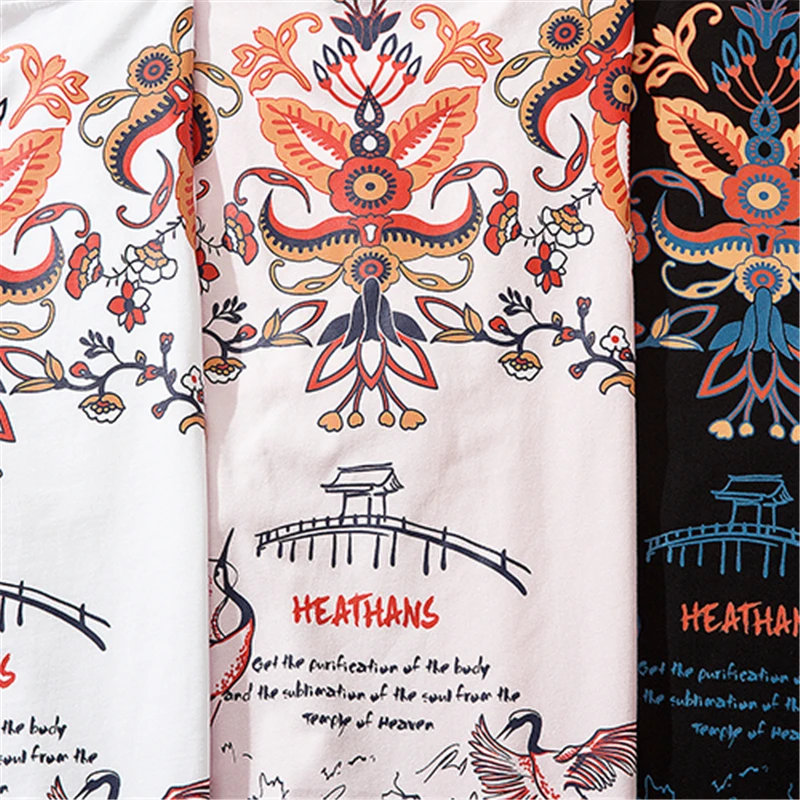 S
the body
soul from the
HEATHANS
Get the purification of the body
and the sublimation of the soul from the
Temple of Heaven
HEATHAN
Get the purification of
the sublimation of the
Temple of Hea